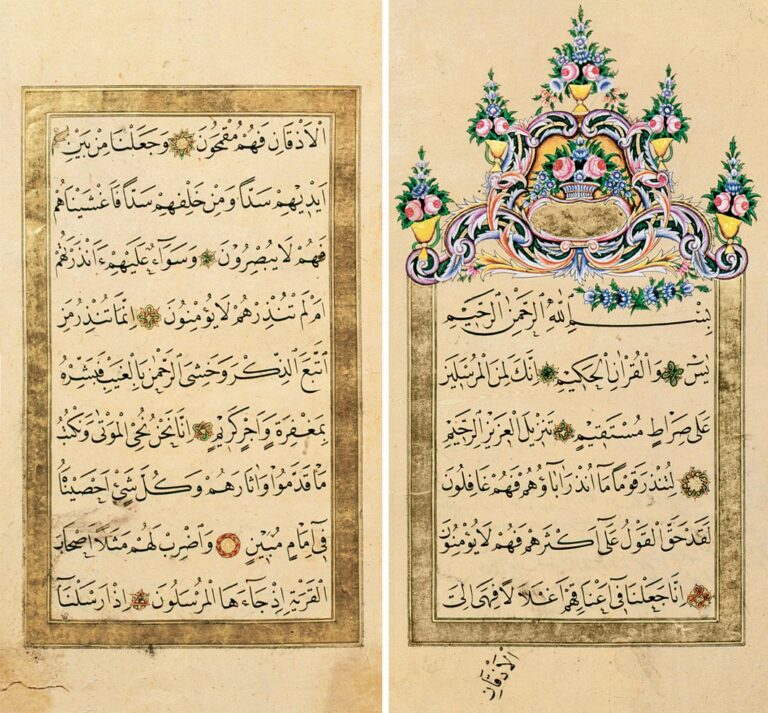 بِسْمِ اللّٰهِ الرَّحْمٰنِ الرَّحِيمِ
يٰسٓ وَالْقُرْاٰنِ الْحَكِيمِ اِنَّكَ لَمِنَ الْمُرْسَلِينَ
عَلٰى صِرَاطٍ مُسْتَقِيمٍ تَنْزِيلَ الْعَزِيزِ الرَّحِيمِ
لِتُنْذِرَ قَوْمًا مَا اُنْذِرَ اٰبَاؤُهُمْ فَهُمْ غَافِلُونَ
لَقَدْ حَقَّ الْقَوْلُ عَلٰى اَكْثَرِهِمْ فَهُمْ لَا يُؤْمِنُونَ
اِنَّا جَعَلْنَا فِى اَعْنَاقِهِمْ اَغْلَالًا فَهِىَ اِلَى
الْاَذْقَانِ
الْاَذْقَانِ فَهُمْ مُقْمَحُونَ وَجَعَلْنَا مِنْ بَيْنِ
اَيْدِيهِمْ سَدًّا وَمِنْ خَلْفِهِمْ سَدًّا فَاَغْشَيْنَاهُمْ
فَهُمْ لَا يُبْصِرُونَ وَسَوَاءٌ عَلَيْهِمْ ءَاَنْذَرْتَهُمْ
اَمْ لَمْ تُنْذِرْهُمْ لَا يُؤْمِنُونَ اِنَّمَا تُنْذِرُ مَنِ
اتَّبَعَ الذِّكْرَ وَخَشِىَ الرَّحْمٰنَ بِالْغَيْبِ فَبَشِّرْهُ
بِمَغْفِرَةٍ وَاَجْرٍ كَرِيمٍ اِنَّا نَحْنُ نُحْىِ الْمَوْتٰى وَنَكْتُبُ
مَا قَدَّمُوا وَاٰثَارَهُمْ وَكُلَّ شَىْءٍ اَحْصَيْنَاهُ
فِى اِمَامٍ مُبِينٍ وَاضْرِبْ لَهُمْ مَثَلًا اَصْحَابَ
الْقَرْيَةِ اِذْ جَاءَهَا الْمُرْسَلُونَ اِذْ اَرْسَلْنَا